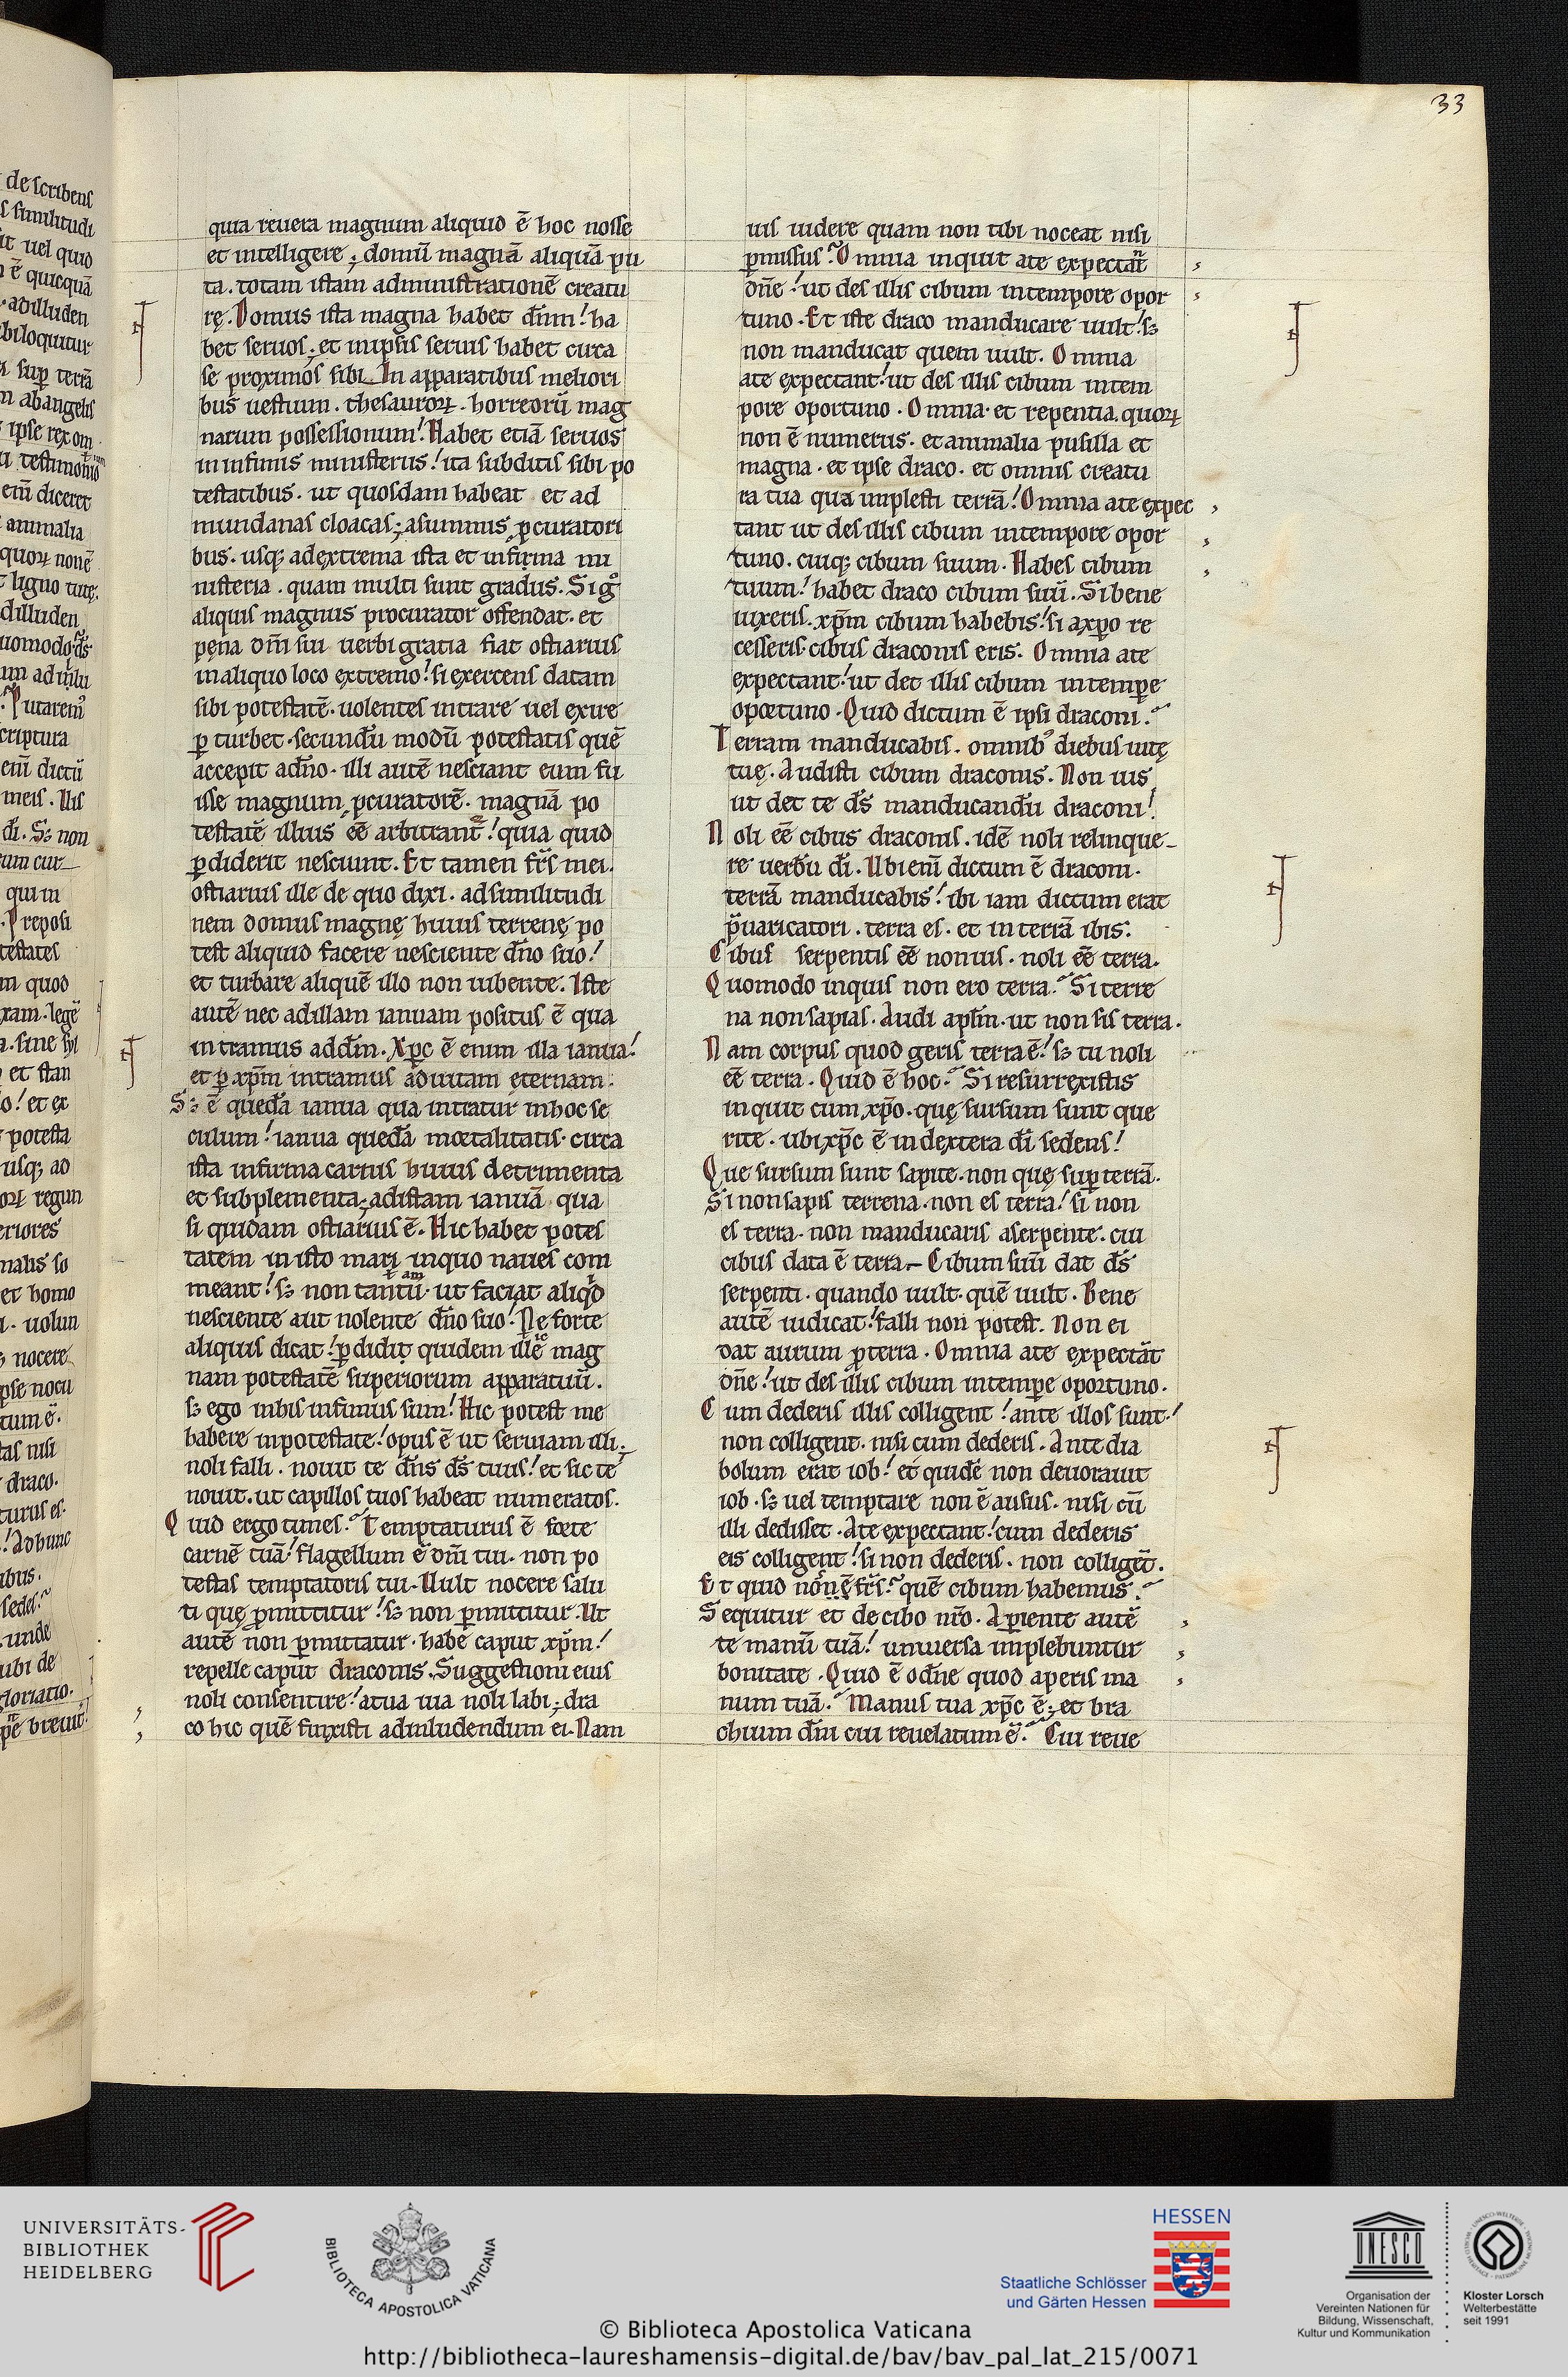 33
quia reuera magnum aliquid ē hoc nosse
et intelligere; domū magnā aliquā pu
ta. totam istam administrationē creatu
rę. Domus ista magna habet dn̄m! ha
bet seruos; et inipsis seruis habet circa
se proximos sibi. In apparatibus meliori
bus uestium. thesauroꝝ. horreorū mag
narum possessionum! Habet etiā seruos
in infimis ministeriis! ita subditis sibi po
testatibus. ut quosdam habeat et ad
mundanas cloacas; asummis, ꝓcuratori
bus. usq; adextrema ista et infirma mi
nisteria. quam multi sunt gradus. Sigͦ
aliquis magnus procurator offendat. et
pęna dn̄i sui uerbi gratia fiat ostiarius
inaliquo loco extremo! si exercens datam
sibi potestatē. uolentes intrare uel exire
ꝑ turbet. secundū modū potestatis quē
accepit adn̄o. illi autē nesciant eum fu
isse magnum, ꝓcuratorē. magnā po
testatē illius, eē arbitrant᷑! quia quid
ꝑdiderit nesciunt. Et tamen fr̄s mei.
ostiarius ille de quo dixi. adsimilitudi
nem domus magnę huius terrenę po
test aliquid facere nesciente dn̄o suo!
et turbare aliquē illo non iubente. Iste
autē nec adillam ianuam positus ē qua
intramus addm̄. Xp̄c ē enim illa ianua!
et ꝑ xp̄m intramus aduitam ęternam:
Sꝫ ē quedā ianua qua intratur inhoc se
culum! ianua quedā mortalitatis. circa
ista infirma carnis huius detrimenta
et subplementa; adistam ianuā qua
si quidam ostiarius ē. Hic habet potes
tatem in isto mari inquo naues com
meant! sꝫ non tantū. ut faciat aliqͥd
nesciente aut nolente dn̄o suo! Ne forte
aliquis dicat! ꝑdidit quidem ille mag
nam potestatē superiorum apparatuū.
sꝫ ego inhis infimus sum! Hic potest me
habere inpotestate! opus ē ut seruiam illi.
noli falli. nouit te dn̄s ds̄ tuus! et sic te
nouit. ut capillos tuos habeat numeratos.
Quid ergo times? Temptaturus ē forte
carnē tuā! flagellum ē dn̄i tui. non po
testas temptatoris tui. Uult nocere salu
ti quę ꝓmittitur! sꝫ non ꝑmittitur. Ut
autē non ꝑmittatur. habe caput xp̄m!
repelle caput draconis. Suggestioni eius
noli consentire! atua uia noli labi; dra
co hic quē finxisti adinludendum ei. Nam
uis uidere quam non tibi noceat nisi
ꝑmissus? Omnia inquit ate expectāt
dn̄e! ut des illis cibum intempore opor
tuno. Et iste draco manducare uult! sꝫ
non manducat quem uult. Omnia
ate expectant! ut des illis cibum intem
pore oportuno. Omnia. et repentia. quoꝝ
non ē numerus. et animalia pusilla et
magna. et ipse draco. et omnis creatu
ra tua qua implesti terrā! Omnia ate expec
tant ut des illis cibum intempore opor
tuno. cuiq; cibum suum. Habes cibum
tuum! habet draco cibum suū. Si bene
uixeris. xp̄m cibum habebis! si axp̄o re
cesseris. cibus draconis eris. Omnia ate
expectant! ut det illis cibum intempe
oportuno. Quid dictum ē ipsi draconi.
Terram manducabis. omnibꝰ diebus uitę
tuę. Audisti cibum draconis. Non uis
ut det te ds̄ manducandū draconi!
Noli eē cibus draconis. idē noli relinque
re uerbū dī. Ubi enī dictum ē draconi.
terrā manducabis! ibi iam dictum erat
p̄uaricatori. terra es. et in terrā ibis:
Cibus serpentis eē non uis. noli eē terra.
Quomodo inquis non ero terra? Si terre
na non sapias. Audi aplm̄. ut non sis terra.
Nam corpus quod geris terra ē! sꝫ tu noli
eē terra. Quid ē hoc? Si resurrexistis
inquit cum xp̄o. quę sursum sunt que
rite. ubi xp̄c ē in dextera dī sedens!
Que sursum sunt sapite. non quę suꝑ terrā.
Si non sapis terrena. non es terra! si non
es terra. non manducaris aserpente. cui
cibus data ē terra. Cibum suū dat ds̄
serpenti. quando uult. quē uult. Bene
autē iudicat! falli non potest. Non ei
dat aurum ꝓterra. Omnia ate expectāt
dn̄e! ut des illis cibum intempe oportuno.
Cum dederis illis colligent! ante illos sunt!
non colligent. nisi cum dederis. Ante dia
bolum erat iob! et quidē non deuorauit
iob. sꝫ uel temptare non ē ausus. nisi cū
illi dedisset. Ate expectant! cum dederis
eis colligent! si non dederis. non colligēt.
Et quid nos fr̄s? quē cibum habemus?
Sequitur et de cibo nr̄o. Aperiente autē
te manū tuā! uniuersa implebuntur
bonitate. Quid ē o dn̄e quod aperis ma
num tuā? Manus tua xp̄c ē; et bra
chium dn̄i cui reuelatum ē? Cui reue
UNIVERSITÄTS-
BIBLIOTHEK
HEIDELBERG
BIBLIOTECA APOSTOLICA VATICANA
HESSEN
Staatliche Schlösser
und Gärten Hessen
UNESCO
Organisation der
Vereinten Nationen für
Bildung, Wissenschaft,
Kultur und Kommunikation
Kloster Lorsch
Welterbestätte
seit 1991
© Biblioteca Apostolica Vaticana
http://bibliotheca-laureshamensis-digital.de/bav/bav_pal_lat_215/0071